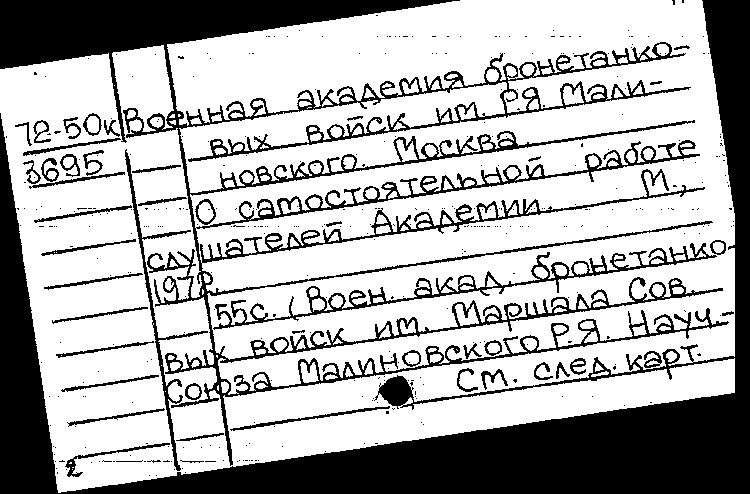 72-50к Военная академия бронетанко-
3695 вых войск им. Р.Я Мали-
новского. Москва.
О самостоятельной работе
слушателей Академии. М.,
1972.
55с. (Воен. акад. бронетанко-
вых войск им. Маршала Сов.
Союза Малиновского Р.Я. Науч.-
См. след. карт.
2